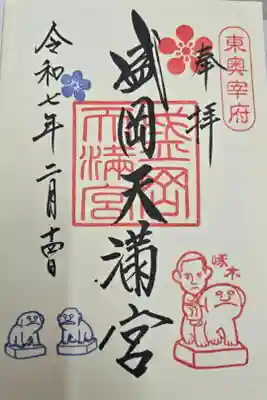 東奥宰府
奉拝
盛岡天満宮
盛岡天満宮
令和七年二月十四日
啄木